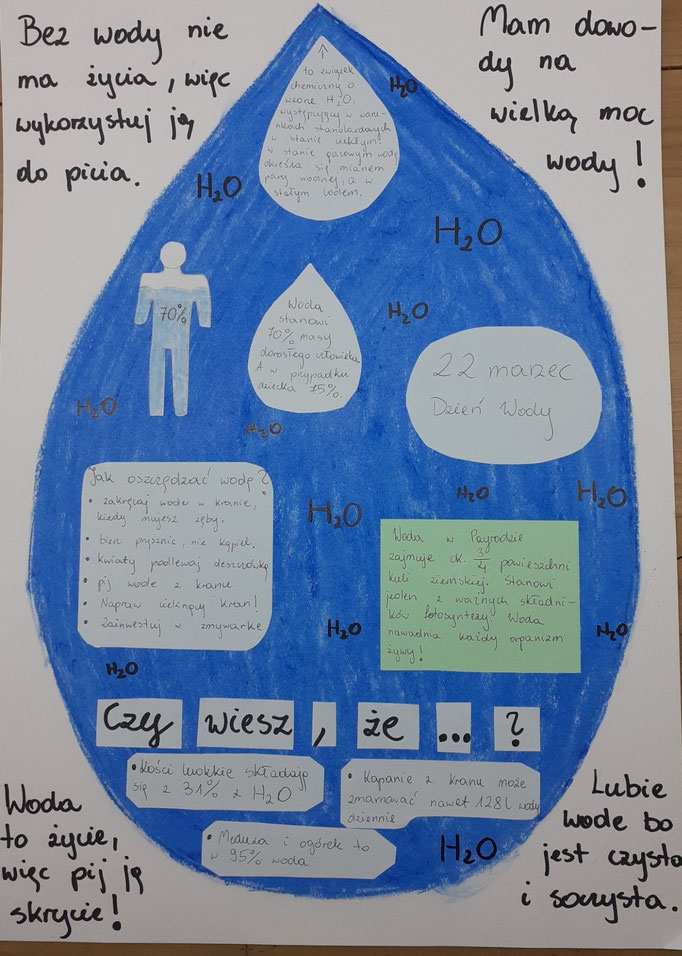 Bez wody nie
ma życia, więc
wykorzystuj ją
do picia.
Mam dowo-
dy na
wielką moc
wody!
to związek
chemiczny o
wzorze H₂O,
występujący w waru-
nkach standardowych
w stanie ciekłym.
W stanie gazowym wodę
określa się mianem
pary wodnej, a w
stałym lodem.
H₂O
H₂O
H₂O
70%
Woda
stanowi
70% masy
dorosłego człowieka
A w przypadku
dziecka 75%.
H₂O
22 marzec
Dzień Wody
H₂O
H₂O
Jak oszczędzać wodę?
• zakręcaj wode w kranie,
kiedy myjesz zęby.
• bierz prysznic, nie kąpiel.
• kwiaty podlewaj deszczówką
• pij wode z kranu
• Napraw cieknący kran!
• Zainwestuj w zmywarke
H₂O
H₂O
H₂O
Woda w Przyrodzie
zajmuje ok. 3/4 powierzchni
kuli ziemskiej. Stanowi
jeden z ważnych składni-
ków fotosyntezy. Woda
nawadnia każdy organizm
żywy!
H₂O
H₂O
H₂O
Czy wiesz, że ... ?
• Kości ludzkie składają
się z 31% z H₂O
• Kapanie z kranu może
zmarnować nawet 128l wody
dziennie
• Meduza i ogórek to
w 95% woda
H₂O
Woda
to życie,
więc pij ją
skrycie!
Lubie
wode bo
jest czysta
i soczysta.